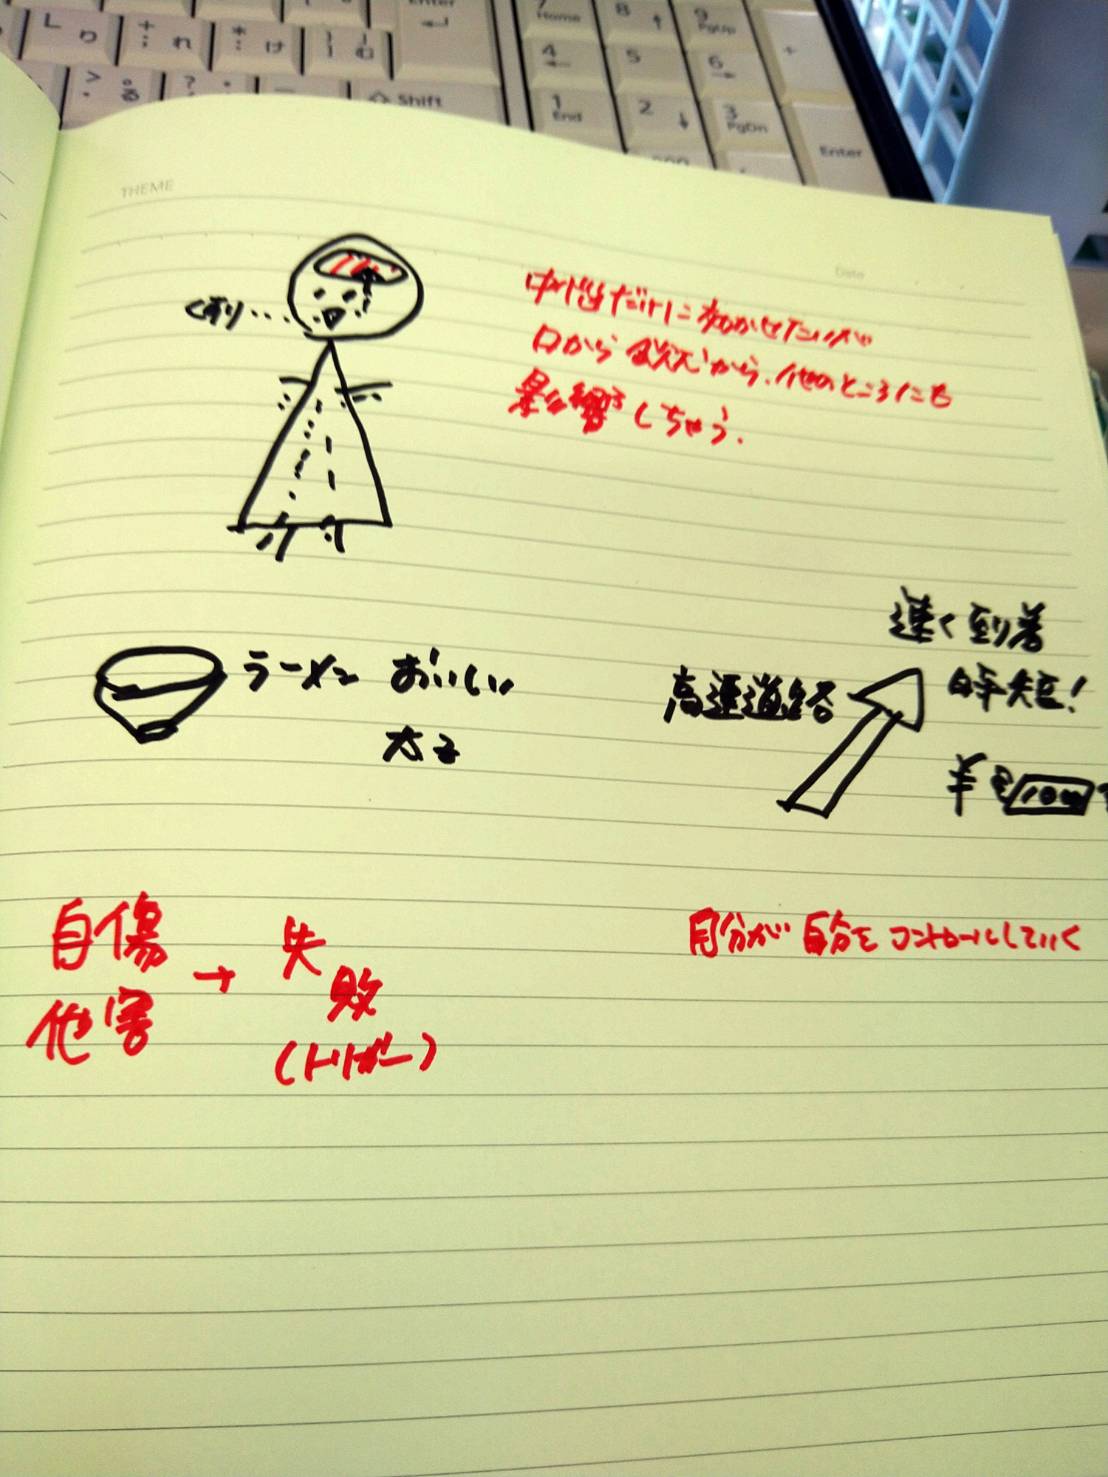 L り
れ
け
む
Enter
る
Shift
7 Home
8
9 PgUp
+
4
5
6
1 End
2
3 PgDn
Enter
THEME
Date
くすり・・・
だけに効かせたいが
口から飲んだから、他のところにも
影響しちゃう.
ラーメン おいしい
太る
高速道路
速く到着
時短!
¥
自傷
他害
→
失敗
(トリガー)
自分が自分をコントロールしていく